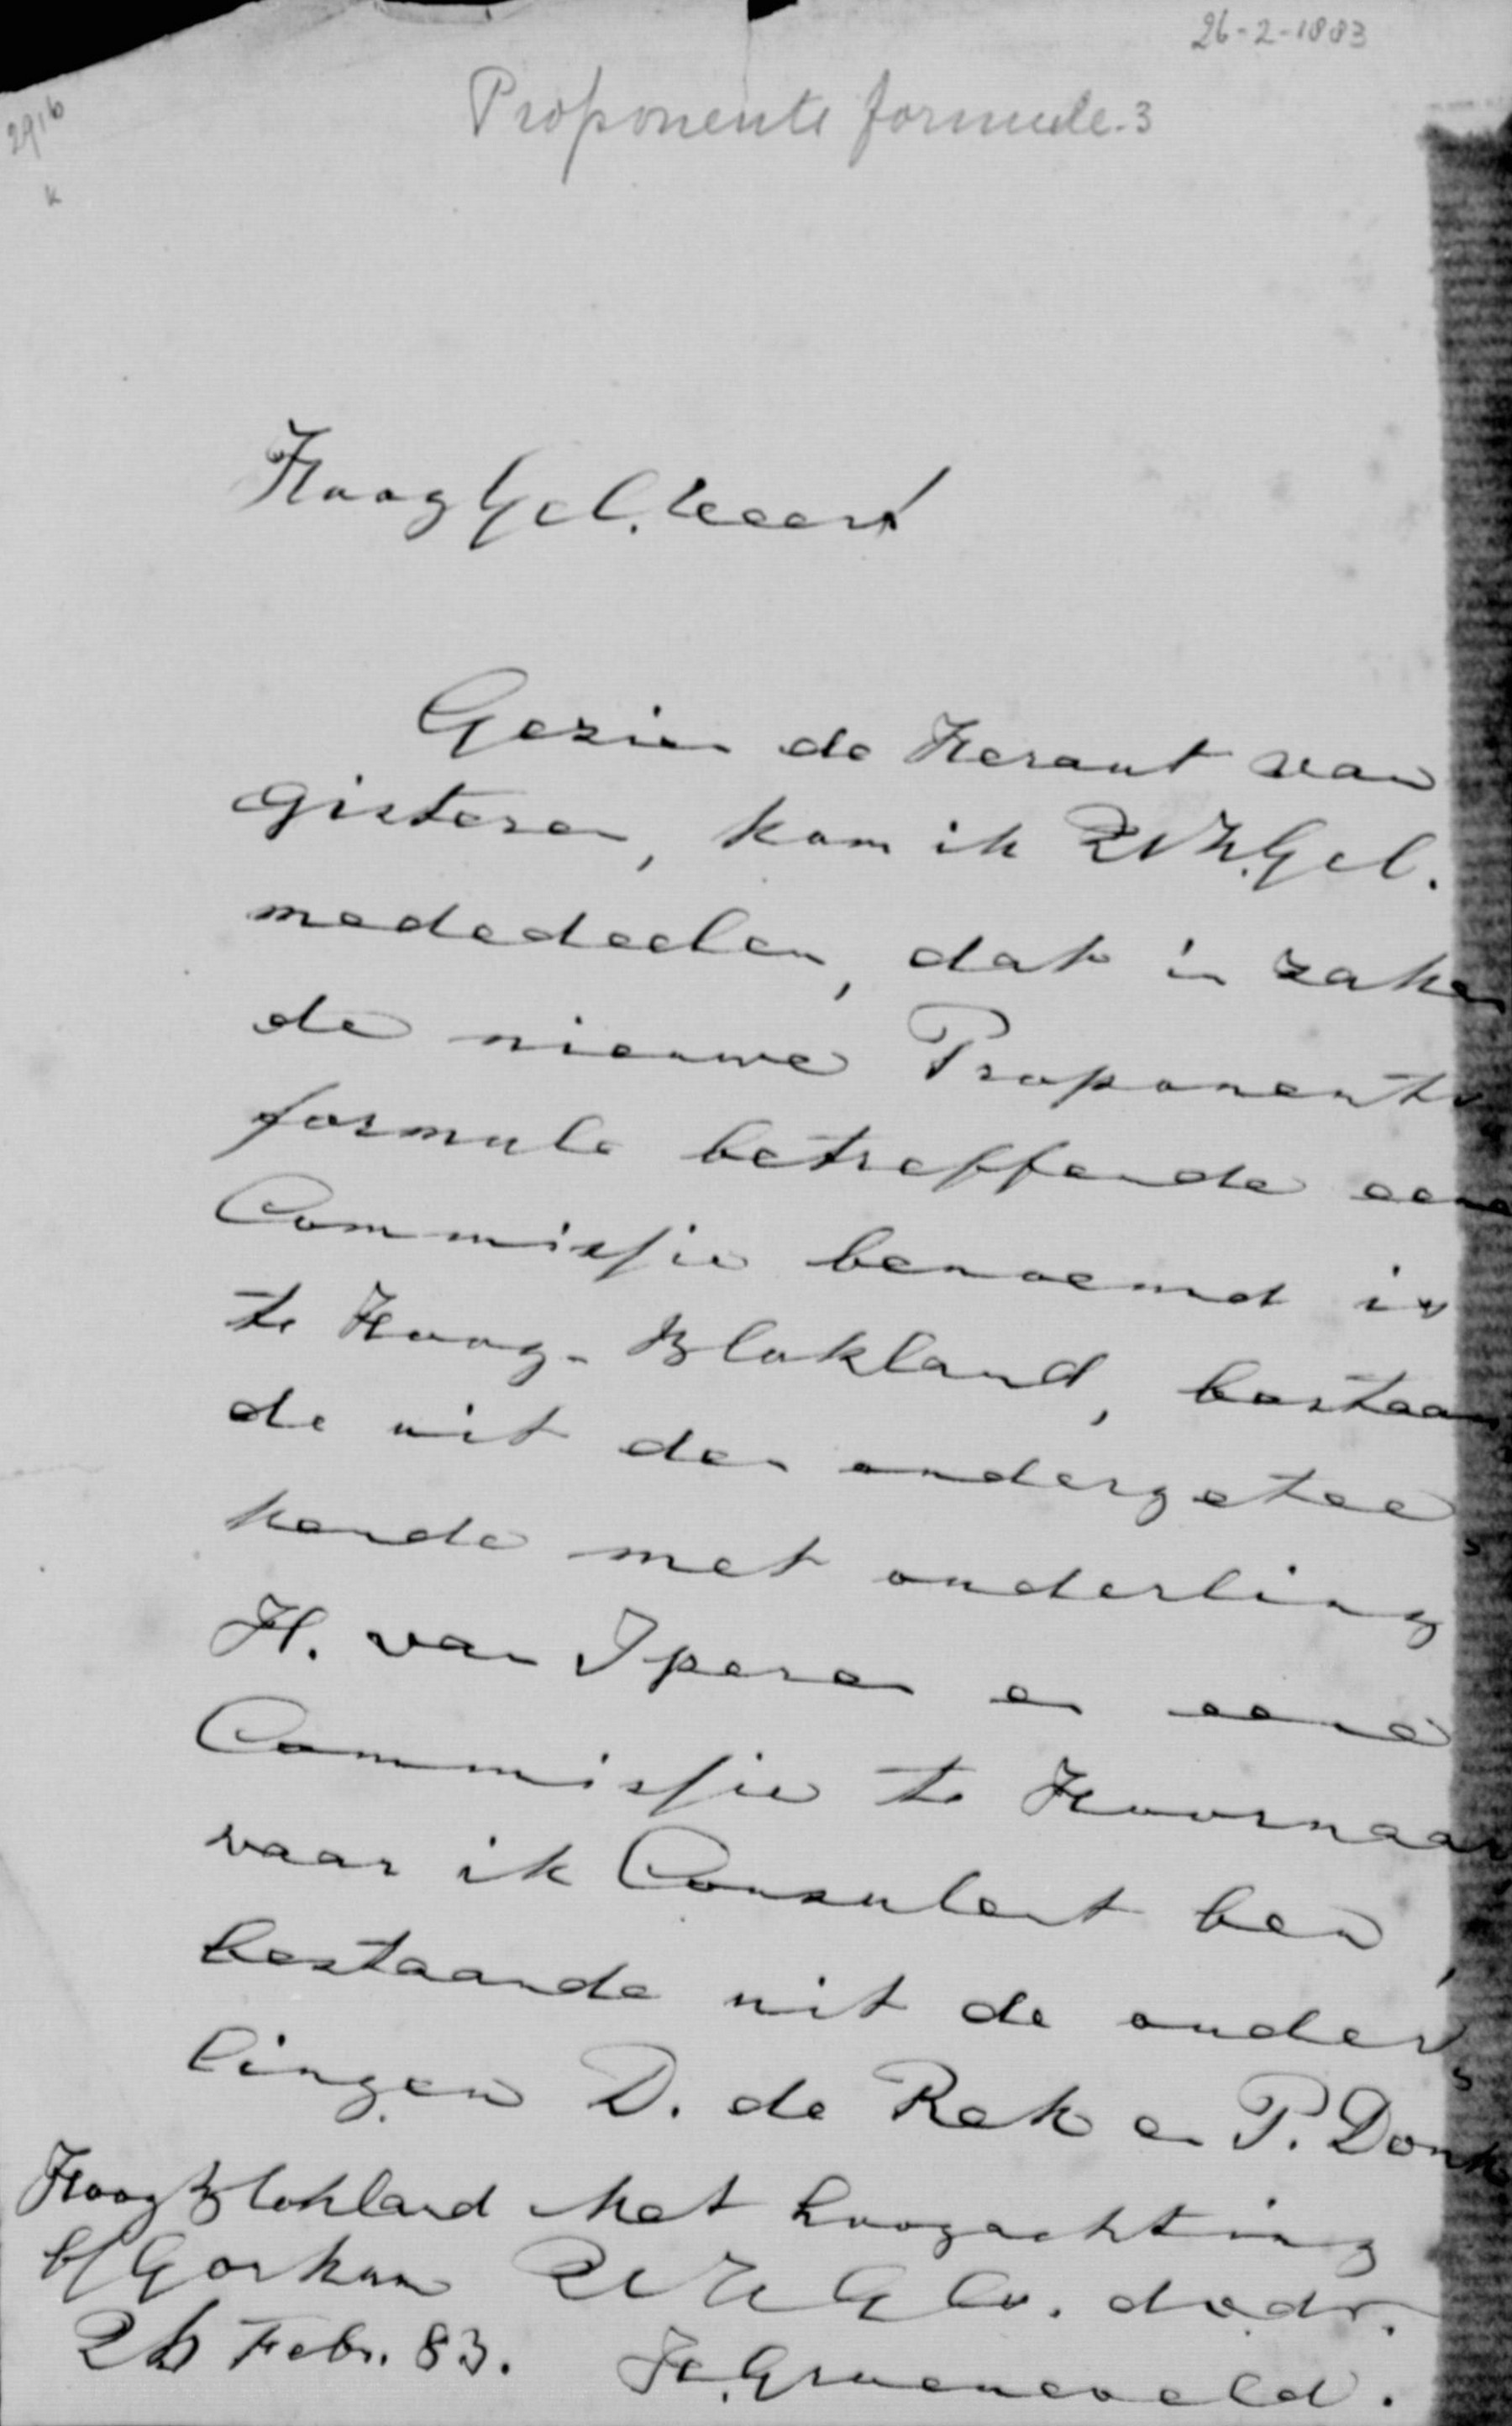 26-2-1883
Proponents formule.3
2916
k
HoogGel. Heer!
Gezien de Heraut van
gisteren, kom ik UH.Gel.
mededeelen, dat in zake
de nieuwe Proponents
formule betreffende eene
Commissie benoemd is
te Hoog-Blokland, bestaan
de uit den ondergetee
kende met ouderling
H. van Iperen en eene
Commissie te Hoornaar
waar ik Consulent ben,
bestaande uit de ouder
lingen D. de Rek en P. Donk
Hoog Blokland Met hoogachting
b/ Gorkum UHGel. dv. dr.
26 Febr. 83. H. Groeneveld.